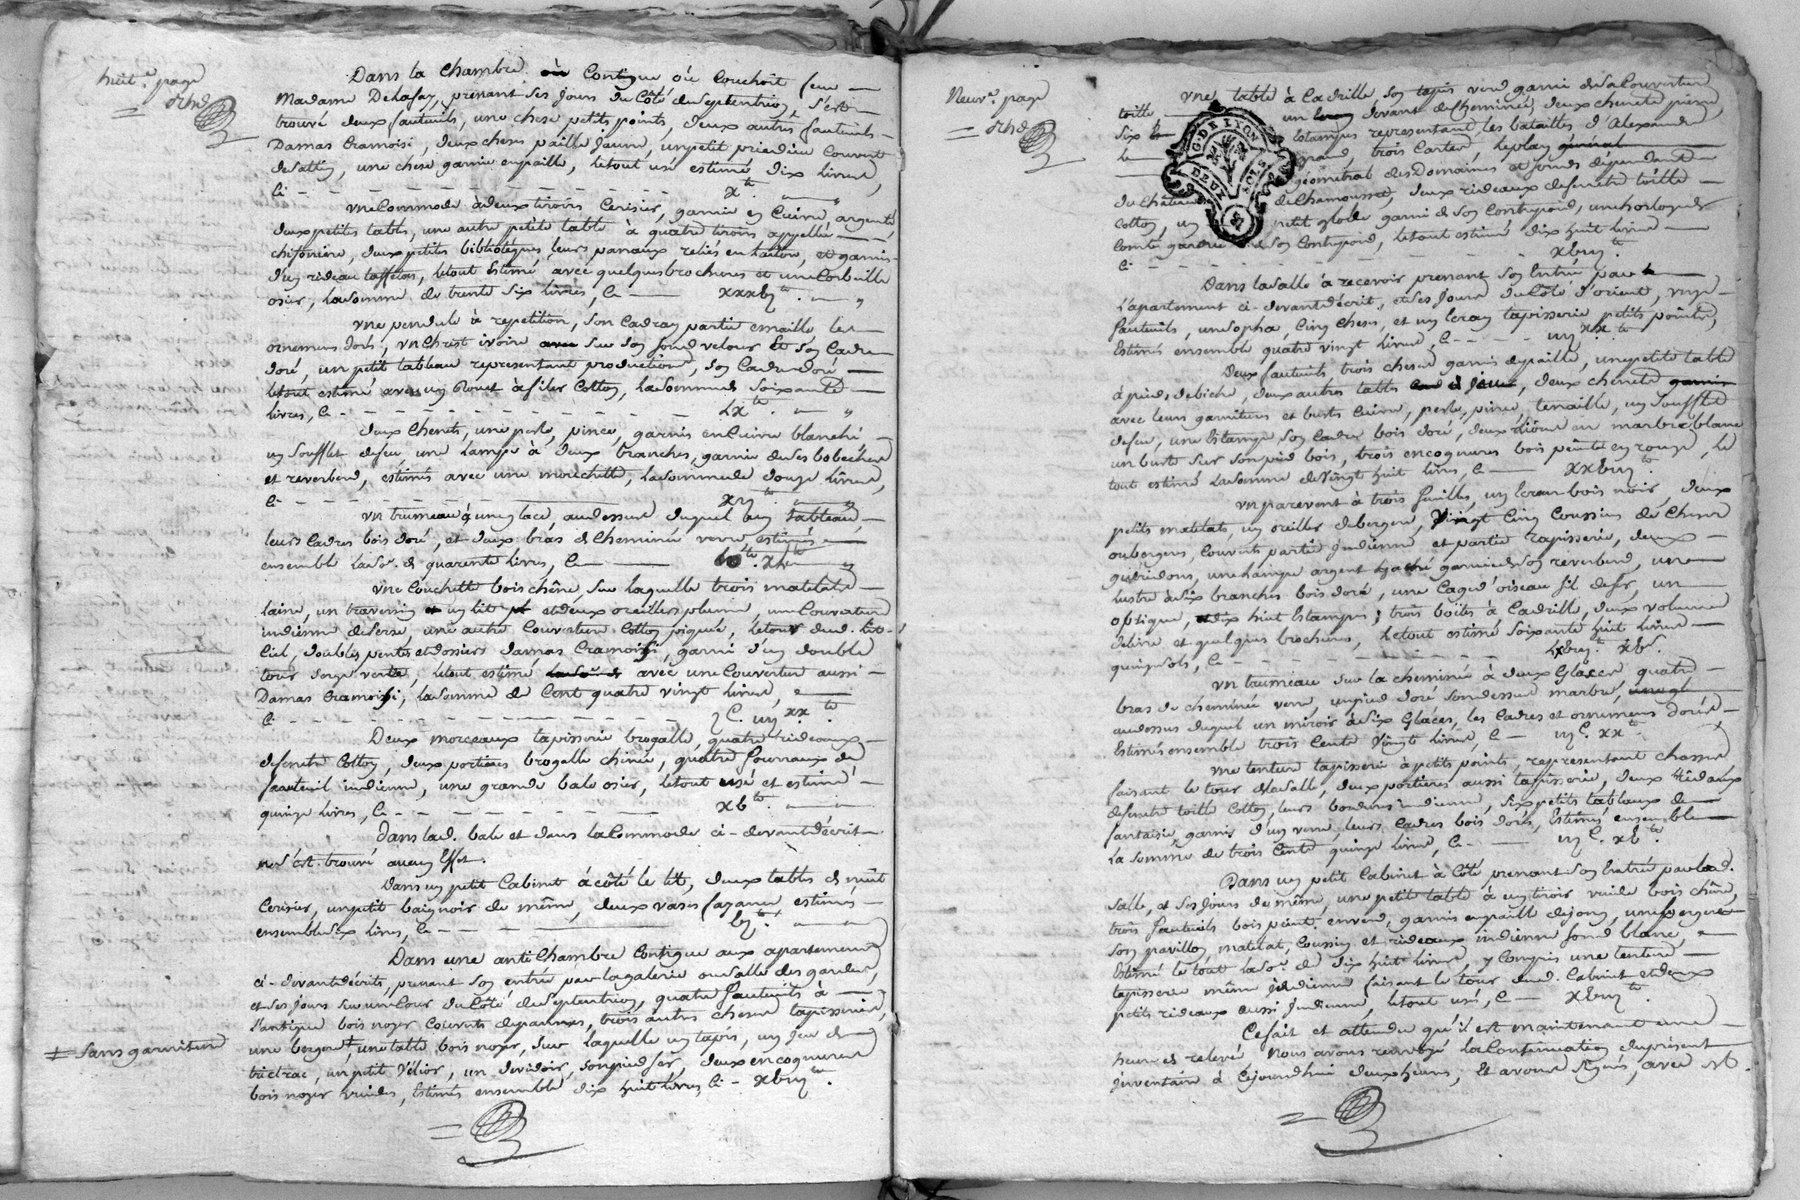 huit.e page
Dans la Chambre où Contigue où Couchoit feue
Madame Delafay, prenant ses jours du Côté du septentrion, s'est
trouvé deux fauteuils, une chese petits points, deux autres fauteuils
Damas Cramoisi, deux cheses paille jaune, un petit priedieu couvert
de sattin, une chese garnie en paille, le tout usé estimé dix livres,
Ci - - - x.tt
Une Commode à deux tiroirs Cerisier, garnie en Cuivre argenté,
deux petits tables, une autre petite table à quatre tiroirs appellée
chifonière, deux petits bibliotèques, leurs panaux reliés en laiton, et garnis
d'un rideau taffetas, le tout Estimé avec quelques brochures et une Corbeille
osier, la somme de trente six livres, Ci — xxxvj.tt
Une pendule à repetition, son Cadran partie emaille les
ornemens dorés, un Christ ivoire avec sur son fond velour Et son Cadre
doré, un petit tableau representant production, son Cadre doré
le tout estimé avec un Rouet à filer Cotton, la somme de soixante
livres, Ci - - - Lx.tt
Deux Chenets, une pesle, pince, garnis en Cuivre blanchi
un soufflet de feu, une Lampe à deux branches, garnie de ses bobeches
et reverbere, estimés avec une mouchette, la somme de douze livres,
Ci - - - xij.tt
Un trumeau à une glace, au dessus duquel un tableau,
leurs Cadres bois doré, et deux bras de Cheminée verre estimés
ensemble la so.e de quarente livres, Ci — xL.tt
Une Couchette bois chêne, sur laquelle trois matelats
laine, un traversin et un lit et deux oreillers plume, une Couverture
indienne de perse, une autre Couverture Cotton piquée, le tour dud. lit
Ciel, doubles pentes et dossiers damas Cramoisi, garni d'un double
tour serge verte, le tout estimé la so.e de avec une Couverture aussi
Damas Cramoisi, la somme de Cent quatre vingt livres,
Ci - - - j C. iiij xx.tt
Deux morceaux tapisserie brogalle, quatre rideaux
de fenetre Cotton, deux portieres brogalle chinée, quatre fourraux de
fauteuil indienne, une grande bale osier, le tout usé et estimé
quinze livres, Ci - - - xv.tt
Dans lad. bale et dans la Commode ci-devant décrit
ne s'est trouvé aucun Effet.
Dans un petit Cabinet à côté le lit, deux tables de nuit
Cerisier, un petit baignoir de même, deux vases fayance estimés
ensemble six livres, Ci - - - vj.tt
Dans une anti Chambre Contigue aux apartements
ci-devant décrits, prenant son entrée par la galerie ou salle des gardes,
et ses jours sur une Cour du Côté du septentrion, quatre fauteuils à
l'antique bois noyer couverts de panne, trois autres cheses tapisserie,
une bergere ‡, une table bois noyer, sur laquelle un tapis, un jeu de
‡ sans garniture
trictrac, un petit Vélior, un devidoir, son pied fer, deux encognures
bois noyer vuides, Estimés ensemble dix huit livres Ci - xviij.tt
Neuv.e page
Une table à Cadrille son tapis verd garni de sa Couverture
toille un Ecran devant de Cheminée, deux chenets pierre,
six Estampes representant les batailles d'Alexandre
le grand, trois Cartes, le plan général
géométral des Domaines et fonds dépendants
du château de Chamousset, deux rideaux de fenetre toille
Cotton, un petit globe garni de son Contrepoid, une horloge de
Comté garnie de son Contrepoid, le tout estimé dix huit livres
Ci - - - xviij.tt
G. DE LYON
DEUX SOLS
Dans la salle à recevoir prenant son Entrée par
l'apartement ci-devant décrit, et ses jours du Côté d'orient, onze
fauteuils, un sopha, Cinq cheses, et un Ecran tapisserie petits points,
Estimés ensemble quatre vingt livres, Ci - - - iiij xx.tt
Deux fauteuils trois cheses garnis de paille, une petite table
à pieds de biche, deux autres tables, deux chenets garnis
avec leurs garnitures et busts Cuivre, pesle, pince, tenaille, un soufflet
de feu, une Estampe son Cadre bois doré, deux Lions en marbre blanc
un buste sur son pied bois, trois encognures bois peinte en rouge, le
tout estimé la somme de Vingt huit livres, Ci — xxviij.tt
Un parevent à trois feuilles, un Ecran bois noir, deux
petits matelats, un oreiller de bergere, Vingt Cinq Coussins de Cheses
ou bergeres, Couverts partie Indienne et partie tapisserie, deux
guéridons, une Lampe argent haché garnie de son reverbere, une
lustre à six branches bois doré, une Cage d'oiseau fil de fer, un
optique, dix huit Estampes, trois boites à Cadrille, deux volumes
de livre et quelques brochures, le tout estimé soixante huit livres
quinze sols, Ci - - - Lxviij.tt xv s.
Un trumeau sur la cheminée à deux Glaces quatre
bras de cheminée verre, un pied doré son dessus marbre, une gl
au dessus duquel un miroir à six Glaces, les Cadres et ornemens dorés
Estimés ensemble trois Cents Vingt livres, Ci — iij C. xx.tt
Une tenture tapisserie à petits points, representant chasse
faisant le tour de la salle, deux portieres aussi tapisserie, deux Rideaux
de fenetre toille Cotton, leurs bordures indienne, six petits tableaux de
fantaisie, garnis d'un verre, leurs Cadres bois dorés, Estimés ensemble
la somme de trois Cents quinze livres, Ci — iij C. xv.tt
Dans un petit Cabinet à Côté prenant son Entrée par lad.
salle, et ses jours de même, une petite table à un tiroir vuide bois chêne,
trois fauteuils bois peint en verd, garnis en paille de jonc, une bergere
son pavillon, matelat, Coussin et rideaux indienne fond blanc,
Estimé le tout la so.e de dix huit livres, y Compris une tenture
tapisserie même indienne faisant le tour dud. Cabinet et deux
petits rideaux aussi Indienne, le tout usé, Ci — xviij.tt
Ce fait et attendu qu'il est maintenant une
heure de relevé Nous avons renvoyé la Continuation du présent
Inventaire à Cejourdhui deux heures, Et avons signés, avec M.